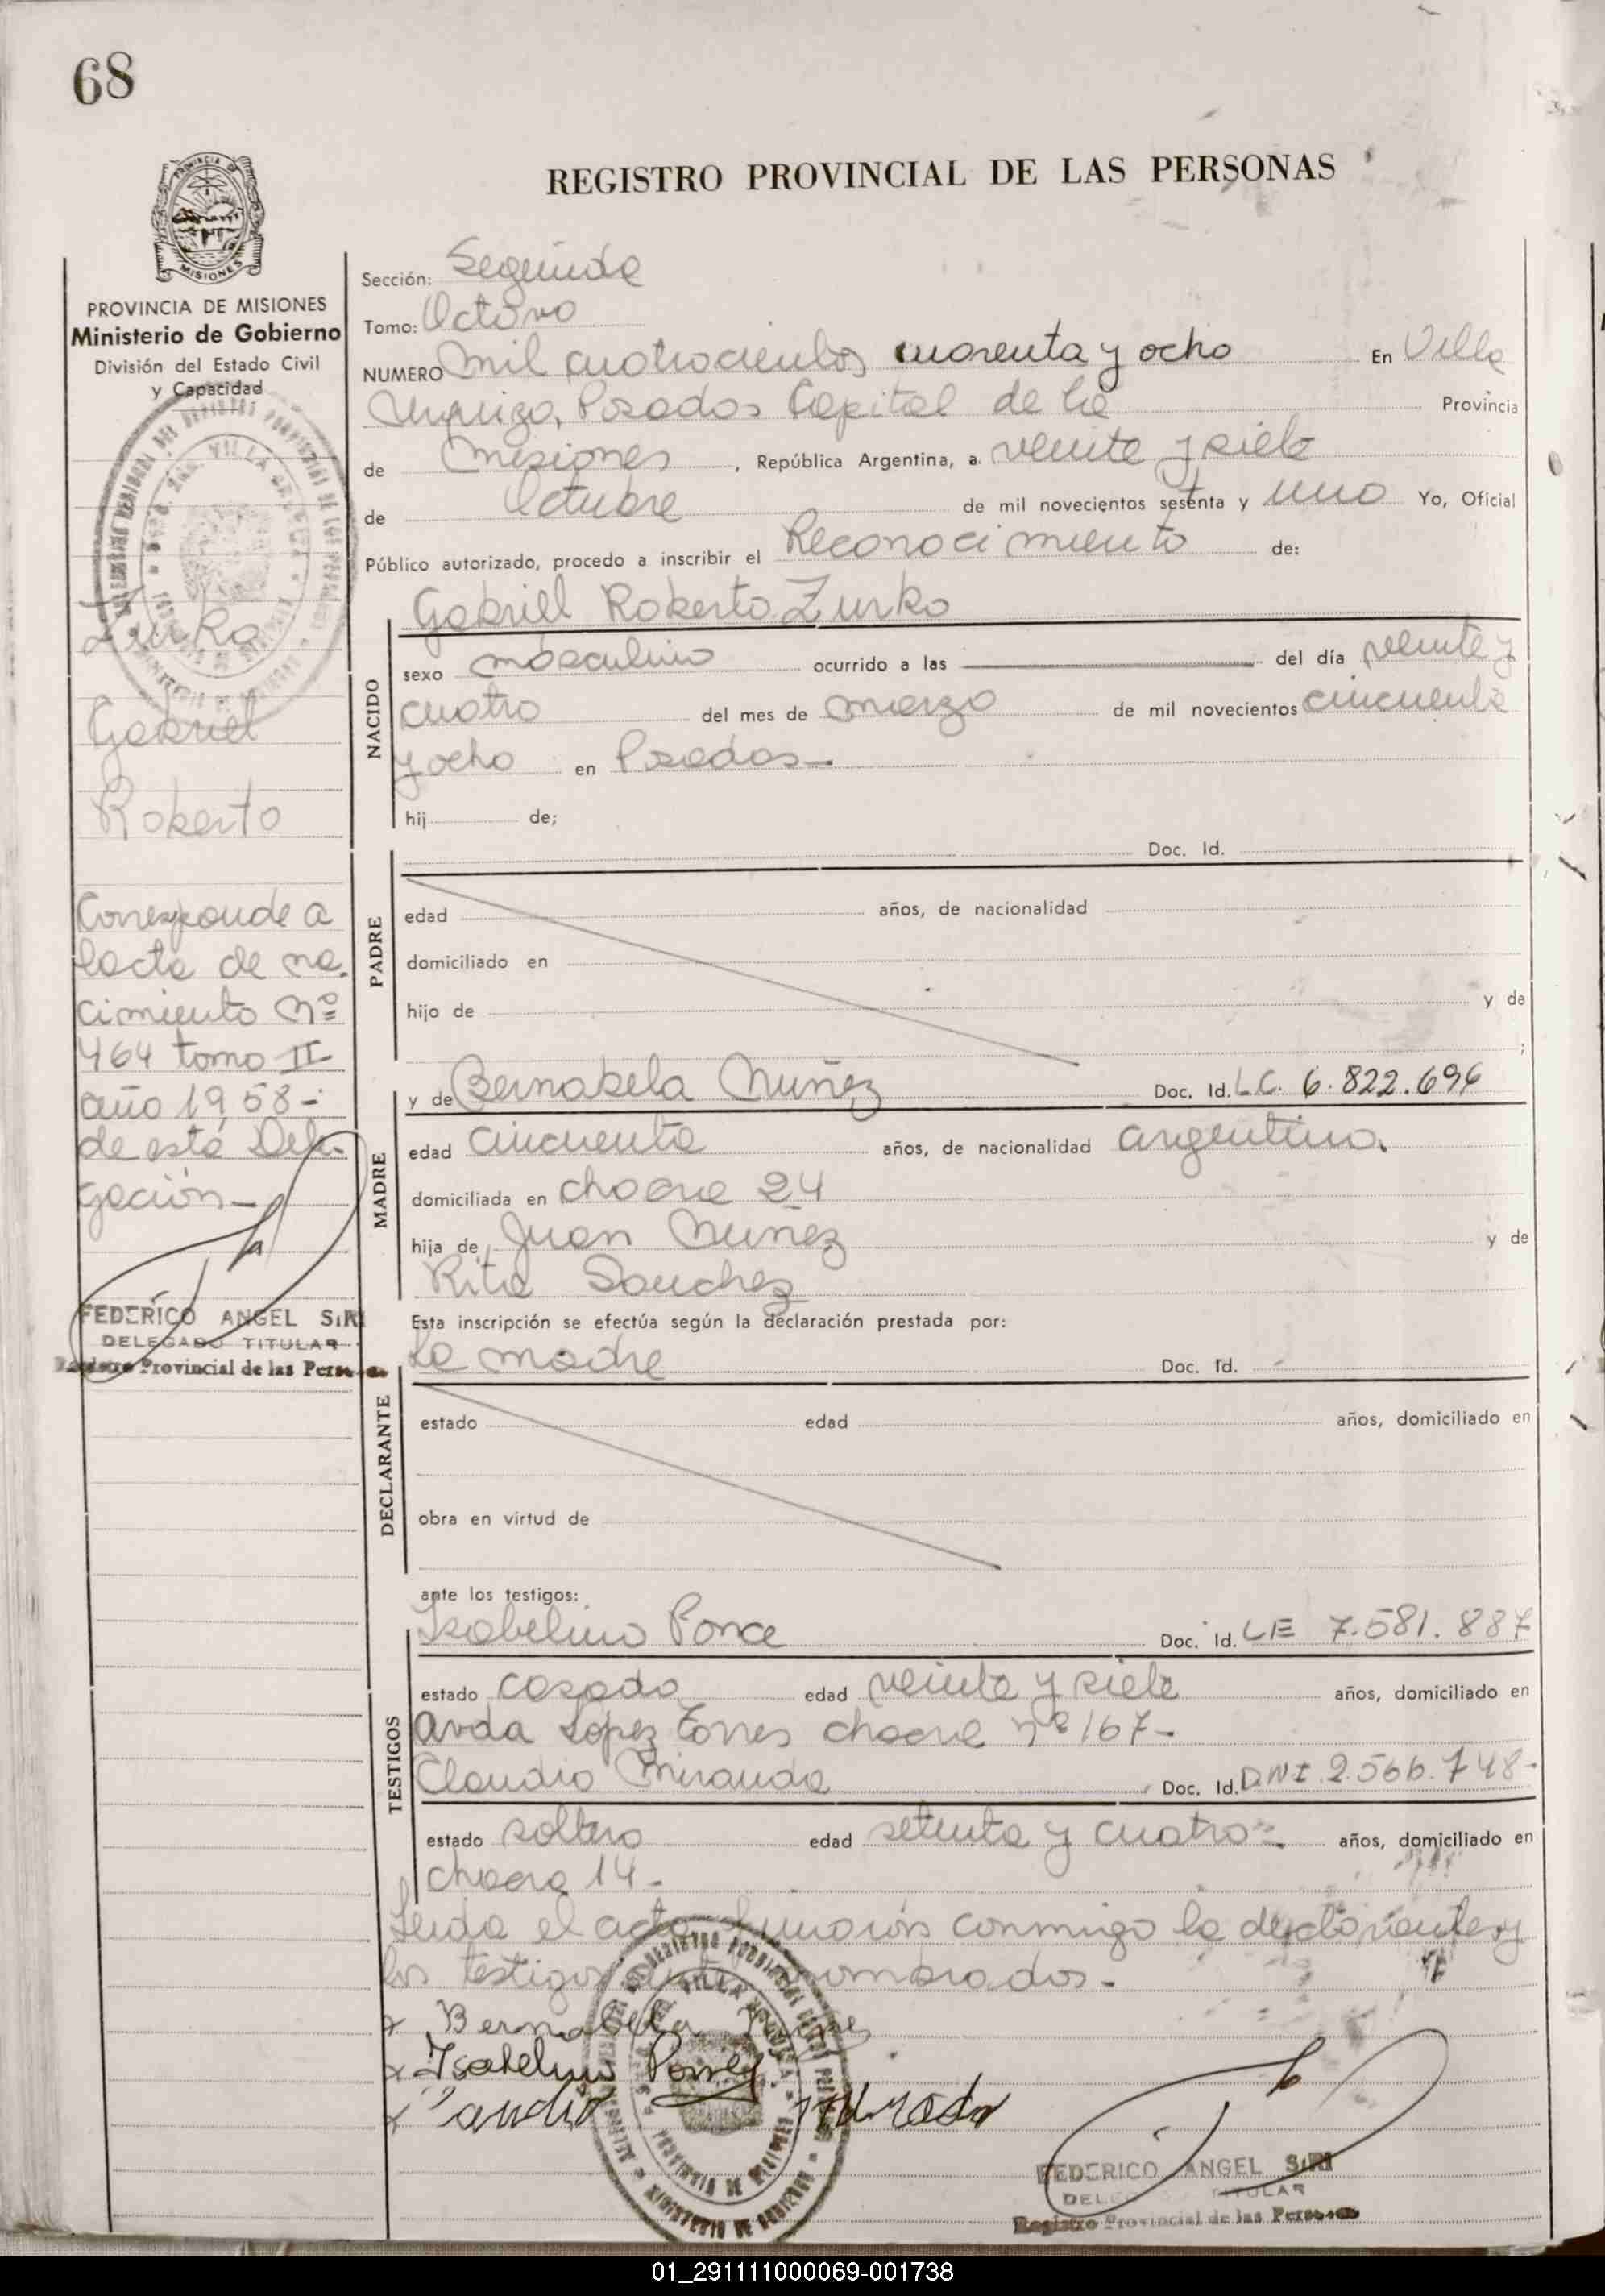 68
REGISTRO PROVINCIAL DE LAS PERSONAS
MISIONES
PROVINCIA DE MISIONES
Ministerio de Gobierno
División del Estado Civil
y Capacidad
Zurko
Gabriel
Roberto
Corresponde a
lacta de na.
cimiento Nº
464 tomo II
año 1958-
de esta Dele
gación-
FEDERICO ANGEL SIRI
DELEGADO TITULAR
Registro Provincial de las Personas
Sección: Segunda
Tomo: Octavo
NUMERO Mil cuatrocientos cuarenta y ocho En Villa
Urquiza, Posadas Capital de la Provincia
de Misiones, República Argentina, a veinte y siete
de Octubre de mil novecientos sesenta y uno Yo, Oficial
Público autorizado, procedo a inscribir el Reconocimiento de:
Gabriel Roberto Zurko
NACIDO
sexo masculino ocurrido a las del día veinte y
cuatro del mes de marzo de mil novecientos cincuenta
y ocho en Posadas-
hij de;
Doc. Id.
PADRE
edad años, de nacionalidad
domiciliado en
hijo de y de
;
MADRE
y de Bernabela Nuñez Doc. Id. L.C. 6.822.696
edad cincuenta años, de nacionalidad argentina.
domiciliada en chacra 24
hija de Juan Nuñez y de
Rita Sanchez
Esta inscripción se efectúa según la declaración prestada por:
La madre Doc. Id.
DECLARANTE
estado edad años, domiciliado en
obra en virtud de
ante los testigos:
Isabelino Ponce Doc. Id. LE 7.581.887
TESTIGOS
estado casado edad veinte y siete años, domiciliado en
Avda Lopez Torres chacra nº 167-
Claudio Miranda Doc. Id. D.N.I. 2.566.748-
estado soltero edad setenta y cuatro- años, domiciliado en
chacra 14-
Leida el acta firmaron conmigo la declarante y
los testigos nombrados-
x Bernabela Nuñez
x Isabelino Ponce
x
FEDERICO ANGEL SIRI
DELEGADO TITULAR
Registro Provincial de las Personas
01_291111000069-001738